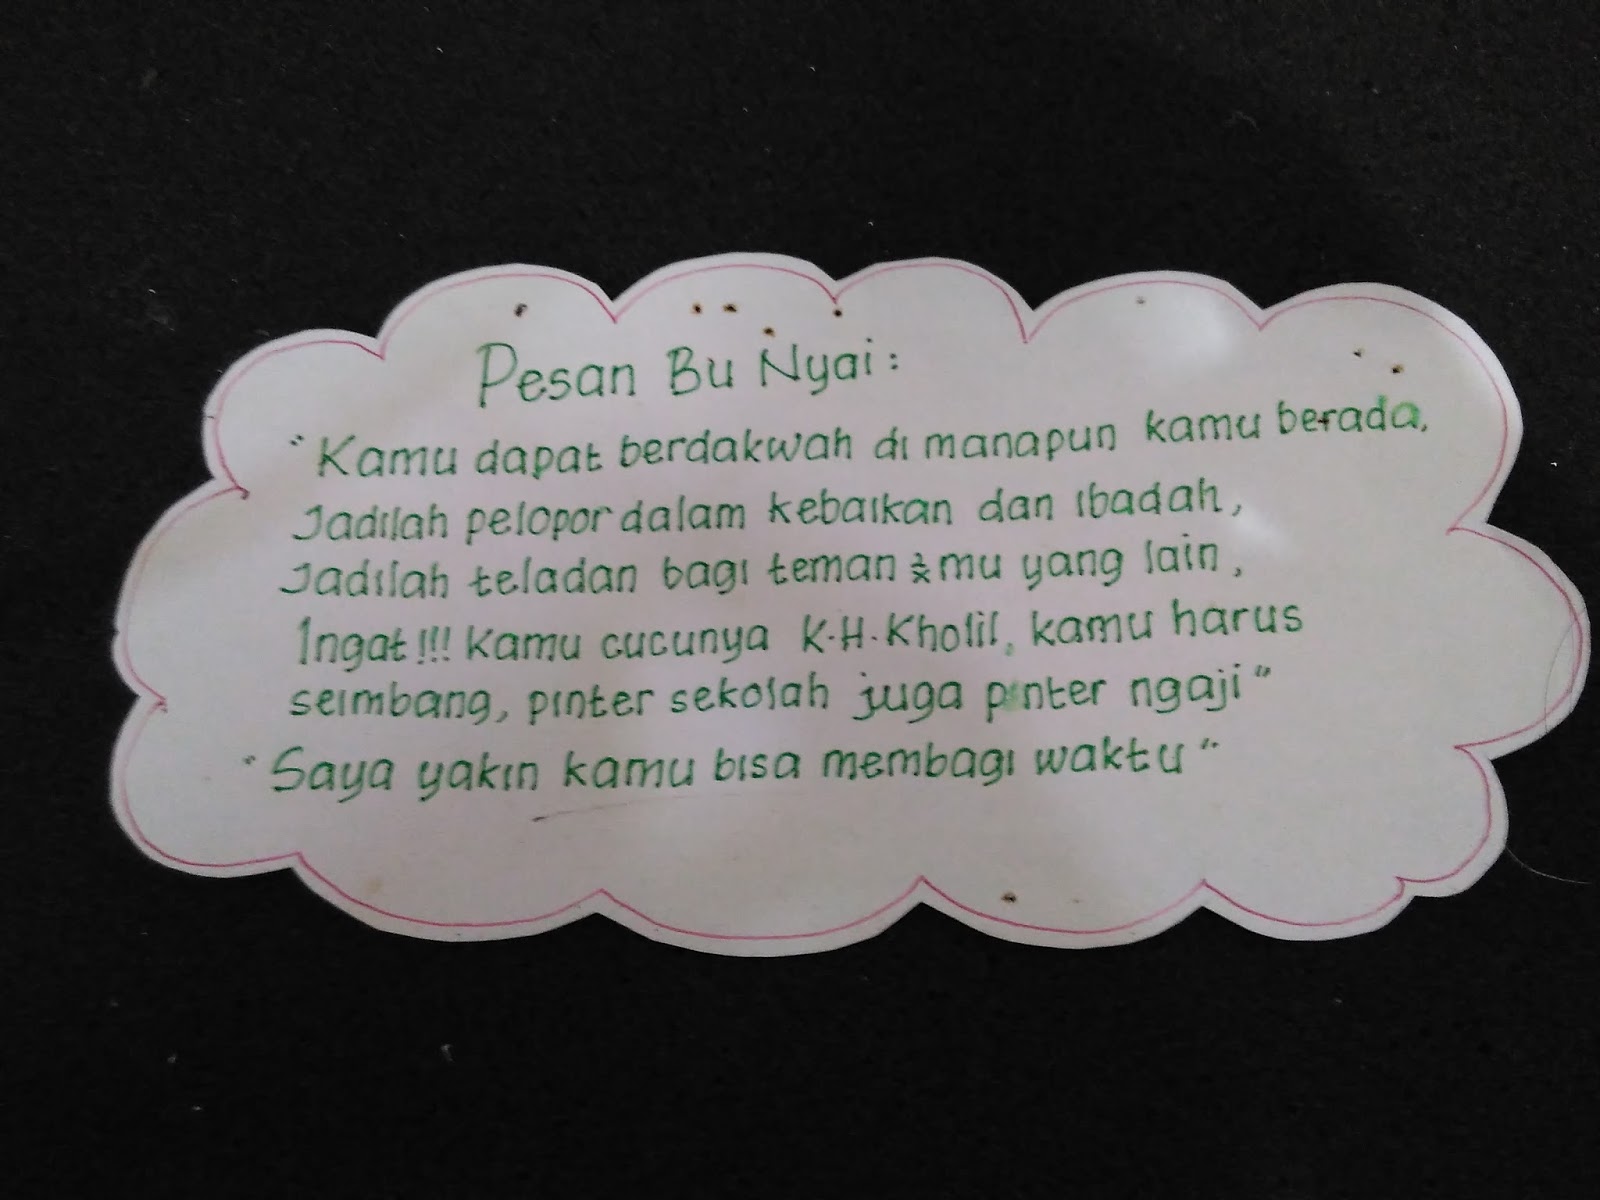 Pesan Bu Nyai :
"Kamu dapat berdakwah di manapun kamu berada,
Jadilah pelopor dalam kebaikan dan ibadah,
Jadilah teladan bagi teman 2x mu yang lain,
Ingat!!! kamu cucunya K.H.Kholil, kamu harus
seimbang, pinter sekolah juga pinter ngaji"
"Saya yakin kamu bisa membagi waktu"